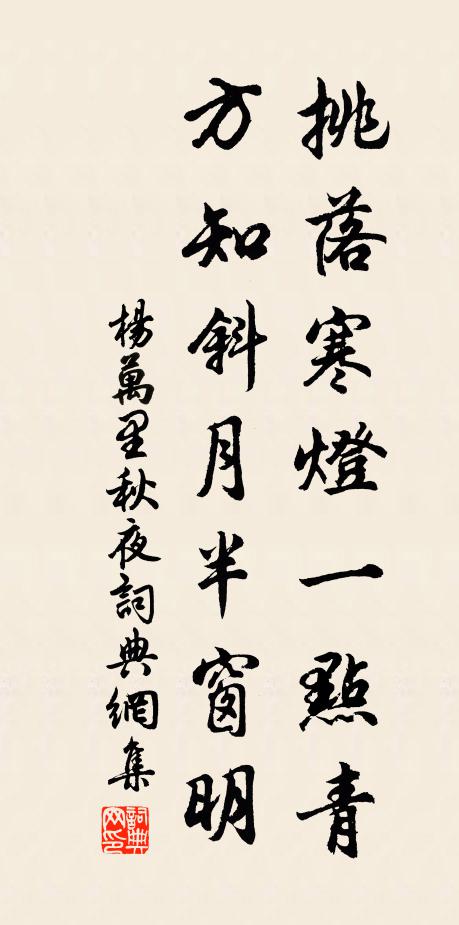 挑落寒燈一點青
方知斜月半窗明
楊萬里秋夜詞典網集
詞典网印